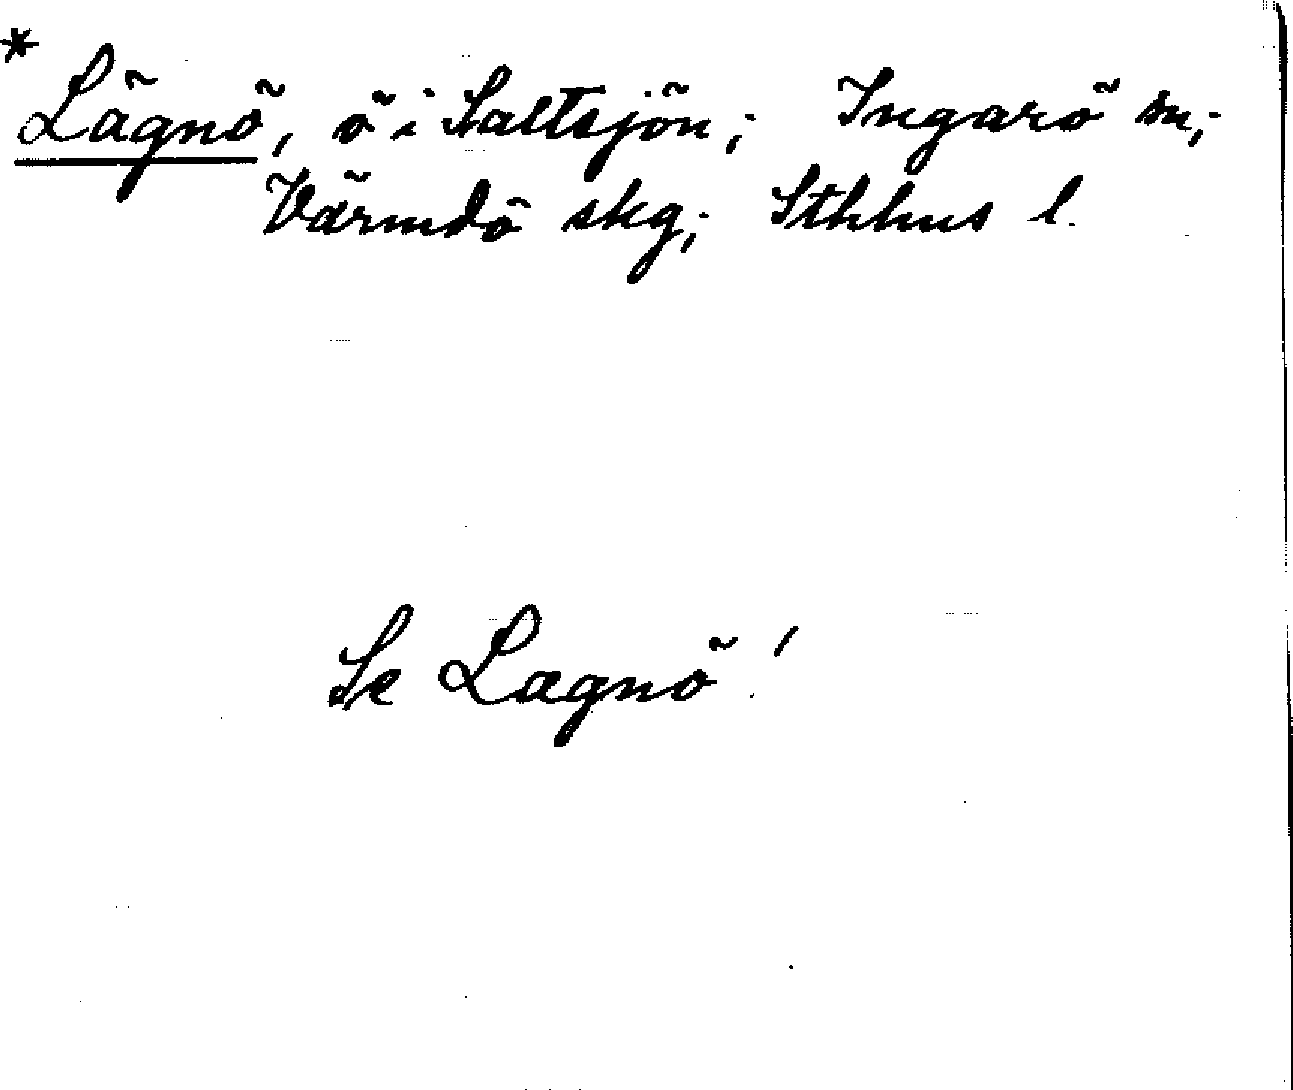 * Lägnö, ö i Saltsjön; Ingarö sn;
Värmdö skg; Sthlms l.
Se Lagnö!